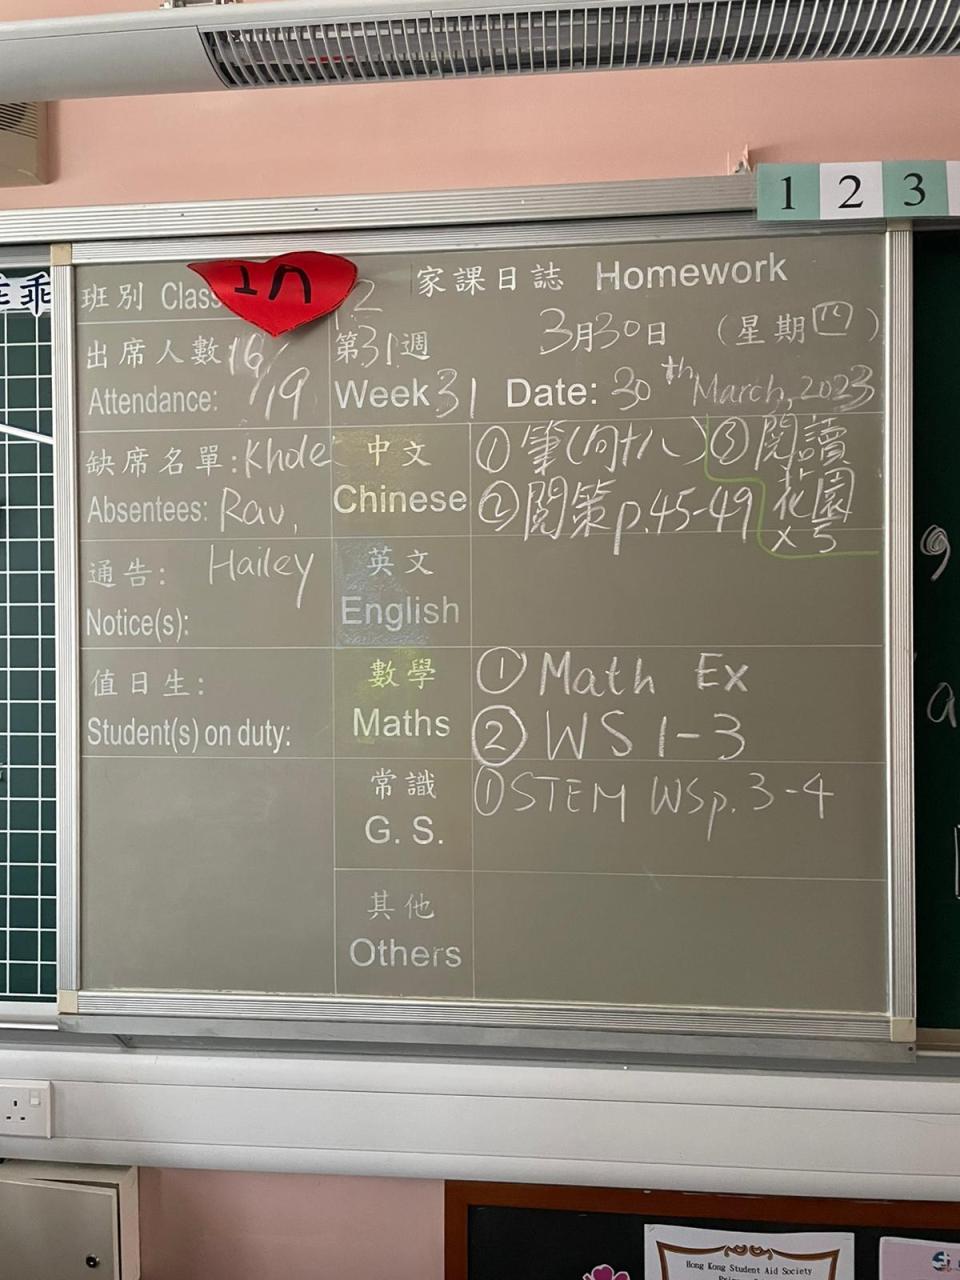 1 2 3
乖
班別 Class
1A
2
家課日誌 Homework
出席人數 16/19
Attendance:
第31週
3月30日 (星期四)
Week 31 Date: 30th March, 2023
缺席名單: Khole
Absentees: Rav,
Hailey
中文
Chinese
① 筆(向十八)
② 閱策 p.45-49
③ 閱讀
花園
x5
通告:
Notice(s):
英文
English
值日生:
Student(s) on duty:
數學
Maths
① Math Ex
② WS 1-3
常識
G. S.
① STEM WS p. 3-4
其他
Others
9
a
Hong Kong Student Aid Society